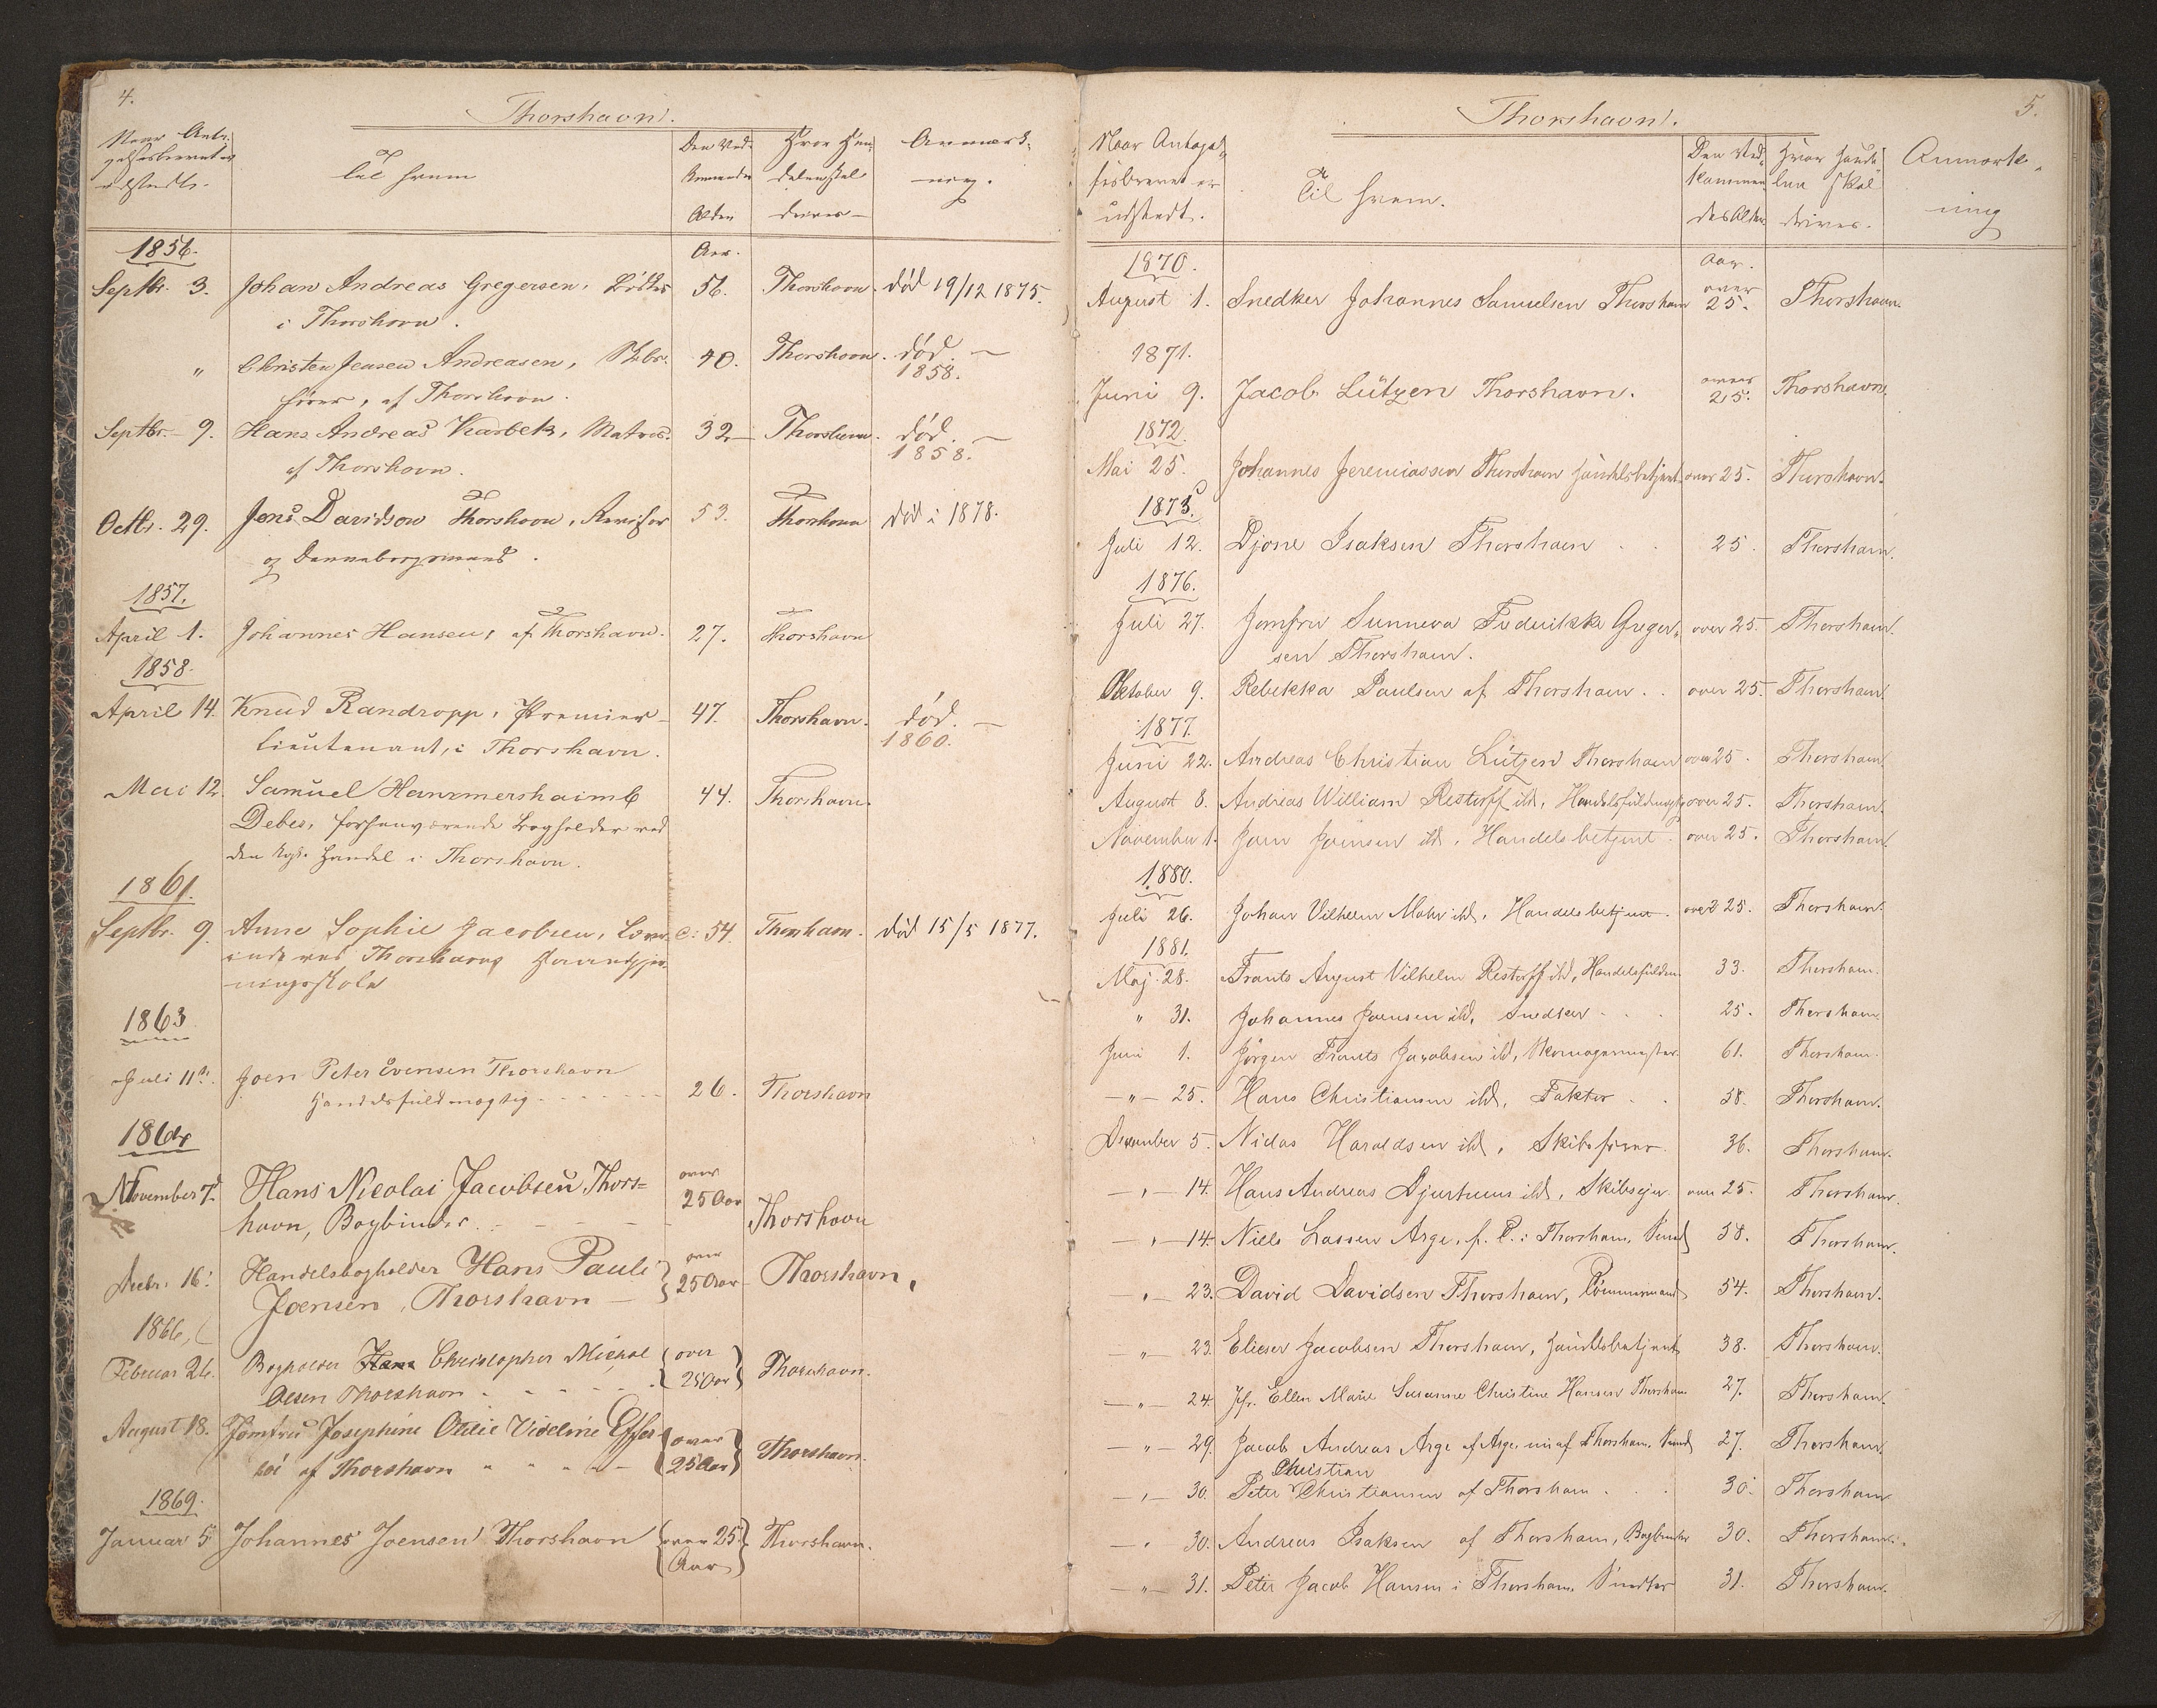 4.
Thorshavn.
Naar Anta-
gelsesbrevet er
udstedt.
Til hvem
Den Ved-
kommendes
Alder
Hvor Han-
delen skal
drives
Anmærk-
ning.
1856.
Aar.
Septbr. 3. Johan Andreas Gregersen, Bødker 56. Thorshavn. død 19/12 1875.
i Thorshavn.
" Christen Jensen Andreasen, Skibs- 40. Thorshavn. død.
fører, af Thorshavn. 1858.
Septbr. 9. Hans Andreas Karbek, Matros. 32 Thorshavn. død.
af Thorshavn. 1858.
Octbr. 29. Jens Davidson Thorshavn, Revisor 53. Thorshavn død i 1878.
og Dannebrogsmand.
1857.
April 1. Johannes Hansen, af Thorshavn. 27. Thorshavn
1858.
April 14. Knud Randropp, Premier- 47. Thorshavn. død.
lieutenant, i Thorshavn. 1860.
Mai 12. Samuel Hammershaimb 44. Thorshavn.
Debes, forhenværende Bogholder ved
den kgl. Handel i Thorshavn.
1861.
Septbr. 9. Anne Sophie Jacobsen, Lærer- c: 54. Thorshavn. død 15/5 1877.
inde ved Thorshavns Haandgjer-
ningsskole
1863
Juli 11te. Joen Peter Evensen Thorshavn
Handelsfuldmægtig - - - - - - 26. Thorshavn
1864
November 7d. Hans Nicolai Jacobsen, Thors= over
havn, Bogbinder. - - - - 25 Aar Thorshavn
Decbr. 16. Handelsbogholder Hans Pauli over
Joensen, Thorshavn — 25 Aar Thorshavn,
1866,
Februar 26. Bogholder Hans Christopher Michal over
Olsen Thorshavn - - - - - 25 Aar Thorshavn.
August 18. Jomfru Josephine Otilie Videline Effer- over
søe af Thorshavn 25 Aar Thorshavn.
1869.
Januar 5 Johannes Joensen Thorshavn over 25 Thorshavn.
Aar
5.
Thorshavn.
Naar Antagel-
sesbrevet er
udstedt.
Til hvem.
Den Ved-
kommen
des Alder
Hvor Hand-
len skal
drives.
Anmærk-
ning
1870.
Aar.
over
August 1. Snedker Johannes Samuelsen Thorshavn 25. Thorshavn.
1871.
over
Juni 9. Jacob Lützen Thorshavn. 25. Thorshavn.
1872.
Mai 25. Johannes Jeremiassen Thorshavn Handelsbetjent over 25. Thorshavn.
1873.
Juli 12. Djone Isaksen Thorshavn . . 25. Thorshavn.
1876.
Juli 27. Jomfru Sunneva Frederikke Greger- over 25. Thorshavn.
sen Thorshavn.
Oktober 9. Rebekka Paulsen af Thorshavn. . over 25. Thorshavn.
1877.
Juni 22. Andreas Christian Lützen Thorshavn over 25. Thorshavn.
August 8. Andreas William Restorff ibd, Handelsfuldmægtig over 25. Thorshavn.
November 1. Joen Joensen ibd. Handelsbetjent. over 25. Thorshavn.
1880.
Juli 26. Johan Vilhelm Mohr ibd. Handelsbetjent. over 25. Thorshavn.
1881.
Maj 28. Frants August Vilhelm Restorff ibd, Handelsfuldm. 33. Thorshavn.
" 31. Johannes Joensen ibd, Snedker . . . 25. Thorshavn.
Juni 1. Jørgen Frants Jacobsen ibd, Skomagermester 61. Thorshavn.
—"— 25. Hans Christiansen ibd, Faktor . . 58. Thorshavn.
December 5. Niclas Haraldsen ibd, Skibsfører. 36. Thorshavn.
—"— 14. Hans Andreas Djurhuus ibd, Skibsejer over 25. Thorshavn.
—"— 14. Niels Lassen Arge, f. P. i Thorshavn, 58. Thorshavn.
—"— 23. David Davidsen Thorshavn, Tømmermand 54. Thorshavn.
—"— 23. Elieser Jacobsen Thorshavn, Handelsbetjent 38. Thorshavn.
—"— 24. Jfr. Ellen Marie Susanne Christine Hansen Thorshavn 27. Thorshavn.
—"— 29. Jacob Andreas Arge af Arge, nu af Thorshavn, 27. Thorshavn.
Christian
—"— 30. Peter Christiansen af Thorshavn . . . 30. Thorshavn
—"— 30. Andreas Isaksen af Thorshavn, Bogbinder 30. Thorshavn.
—"— 31. Peter Jacob Hansen i Thorshavn, Snedker 31. Thorshavn.